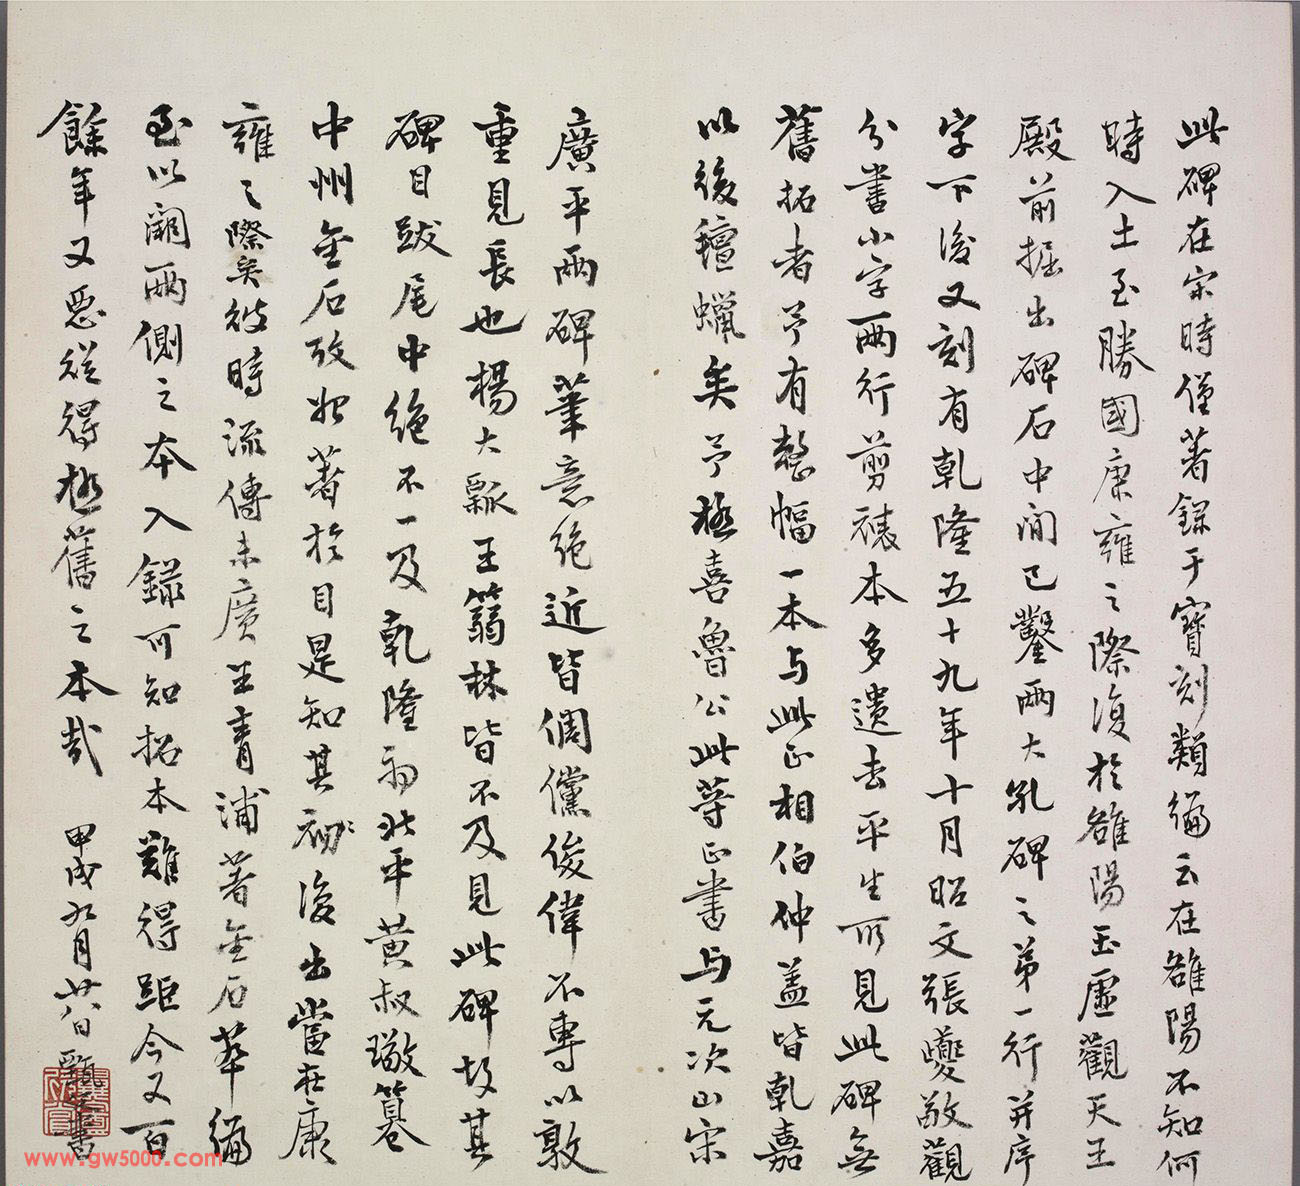 此碑在宋時僅著錄于寶刻類編云在雒陽不知何
時入土至勝國康雍之際復於雒陽玉虛觀天王
殿前掘出碑石中間已鑿兩大孔碑之第一行并序
字下後又刻有乾隆五十九年十月昭文張燮敬觀
分書小字兩行剪褾本多遺去平生所見此碑無
舊拓者予有整幅一本与此正相伯仲蓋皆乾嘉
以後氊蠟矣予極喜魯公此等正書与元次山宋
廣平兩碑筆意絶近皆倜儻俊偉不專以敦
重見長也楊大瓢王篛林皆不及見此碑故其
碑目跋尾中絶不一及乾隆初北平黃叔璥纂
中州金石攷始著於目是知其初〻復出當在康
雍之際矣彼時流傳未廣王青浦著金石萃編
至以闕兩側之本入錄可知拓本難得距今又百
餘年又惡從得極舊之本哉 甲戌九月廿八日 甄之書
www.gw5000.com